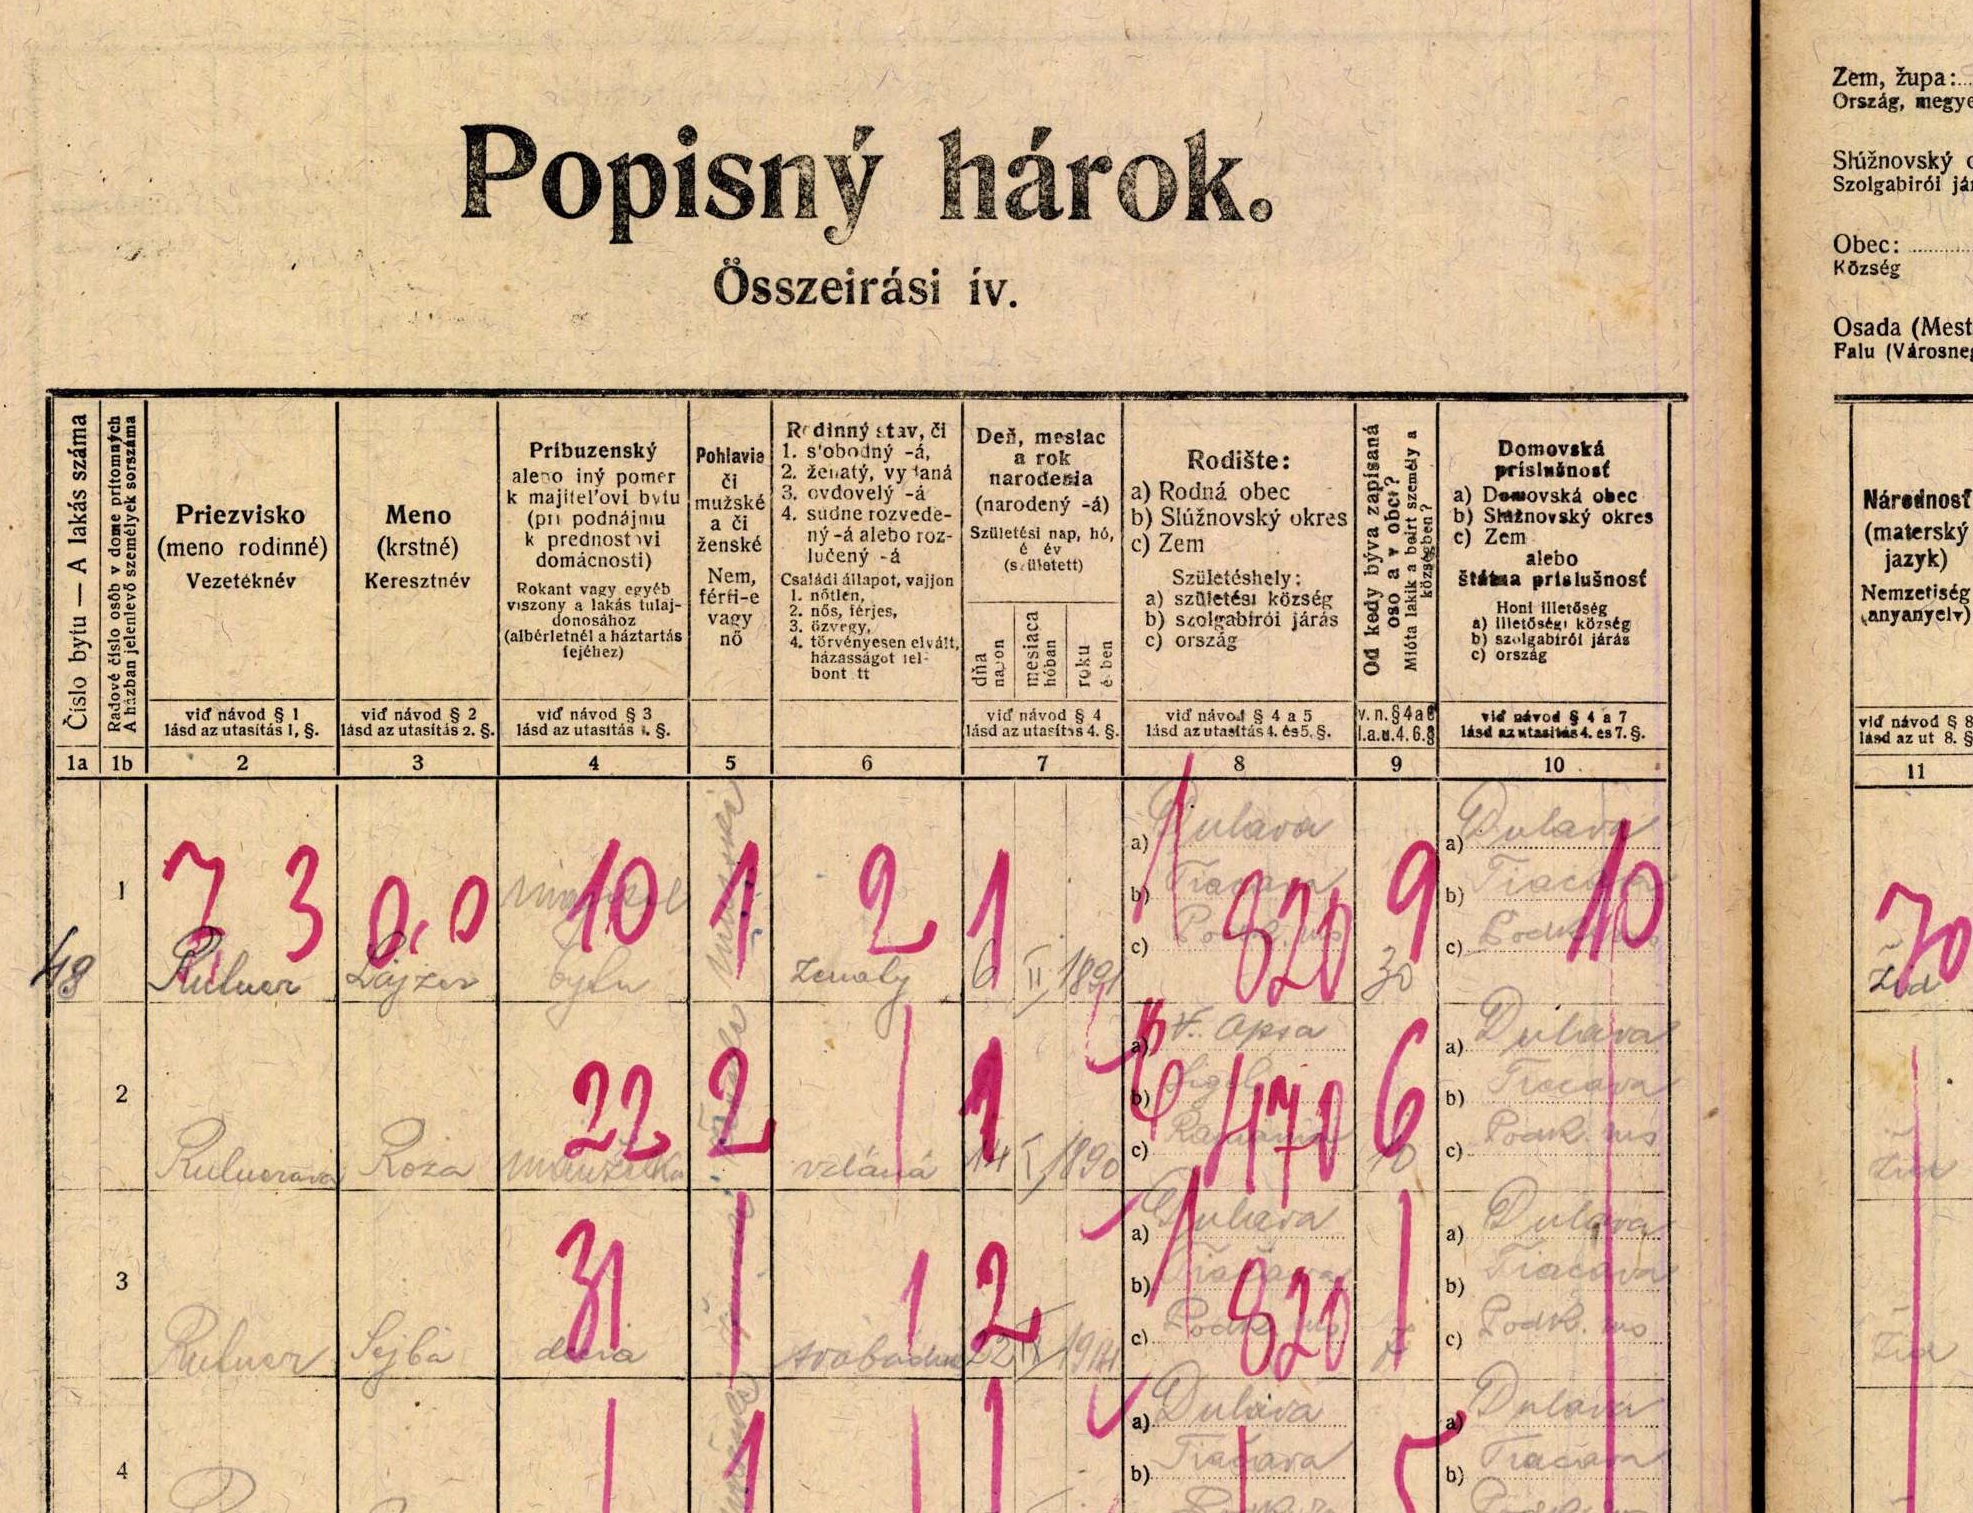 Popisný hárok.
Összeirási ív.
Zem, župa:
Ország, megye
Slúžnovský
Szolgabirói
Obec:
Község
Osada
Falu
Číslo bytu — A lakás száma
Radové číslo osôb v dome prítomných
A házban jelenlevő személyek sorszáma
Priezvisko
(meno rodinné)
Vezetéknév
Meno
(krstné)
Keresztnév
Príbuzenský
aleno iný pomer
k majiteľovi bytu
(pri podnájmu
k prednostovi
domácnosti)
Rokant vagy egyéb
viszony a lakás tulaj-
donosához
(albérletnél a háztartás
fejéhez)
Pohlavie
či
mužské
a či
ženské
Nem,
férfi-e
vagy
nő
Rodinný stav, či
1. s'obodný -á,
2. ženatý, vydaná
3. ovdovelý -á
4. súdne rozvede-
ný -á alebo roz-
lučený -á
Családi állapot, vajjon
1. nőtlen,
2. nős, férjes,
3. özvegy,
4. törvényesen elvált,
házasságot fel-
bont tt
Deň, mesiac
a rok
narodenia
(narodený -á)
Születési nap, hó,
é év
(született)
dňa
napon
mesiaca
hóban
roku
é ben
Rodište:
a) Rodná obec
b) Slúžnovský okres
c) Zem
Születéshely:
a) születési község
b) szolgabirói járás
c) ország
Od kedy býva zapísaná
oso a v obci?
Mióta lakik a beirt személy a
községben?
Domovská
príslušnosť
a) Domovská obec
b) Slúžnovský okres
c) Zem
alebo
štátna príslušnosť
Honi illetőség
a) illetőségi község
b) szolgabirói járás
c) ország
Národnosť
(materský
jazyk)
Nemzetiség
(anyanyelv)
viď návod § 1
lásd az utasítás 1, §.
viď návod § 2
lásd az utasítás 2. §.
viď návod § 3
lásd az utasítás 3. §.
viď návod § 4
lásd az utasítás 4. §.
viď návod § 4 a 5
lásd az utasítás 4. és 5. §.
v. n. § 4 a 6
l. a. u. 4. 6. §
viď návod § 4 a 7
lásd az utasítás 4. és 7. §.
viď návod § 8
lásd az ut 8. §
1a 1b 2 3 4 5 6 7 8 9 10 11
7 3 0,0 10 1 2 1 820 9 10 70
48 1 Rulner Lajzer manžel bytu mužské ženatý 6 II 1891
a) Dulava
b) Tiacava
c) Podk. rus
30
a) Dulava
b) Tiacava
c) Podk. rus
Žid
22 2 1 470 6
2 Rulnerova Roza manželka vydaná 14 I 1890
a) V. Apsa
b)
c) Rumunia
10
a) Dulava
b) Tiacava
c) Podk. rus
Žid
31 1 2 820
3 Rulner Sejba dcera svobodna 22
a) Dulava
b) Tiacava
c) Podk. rus
7
a) Dulava
b) Tiacava
c) Podk. rus
Žid
1 1 5
4
a) Dulava
b) Tiacava
a) Dulava
b) Tiacava